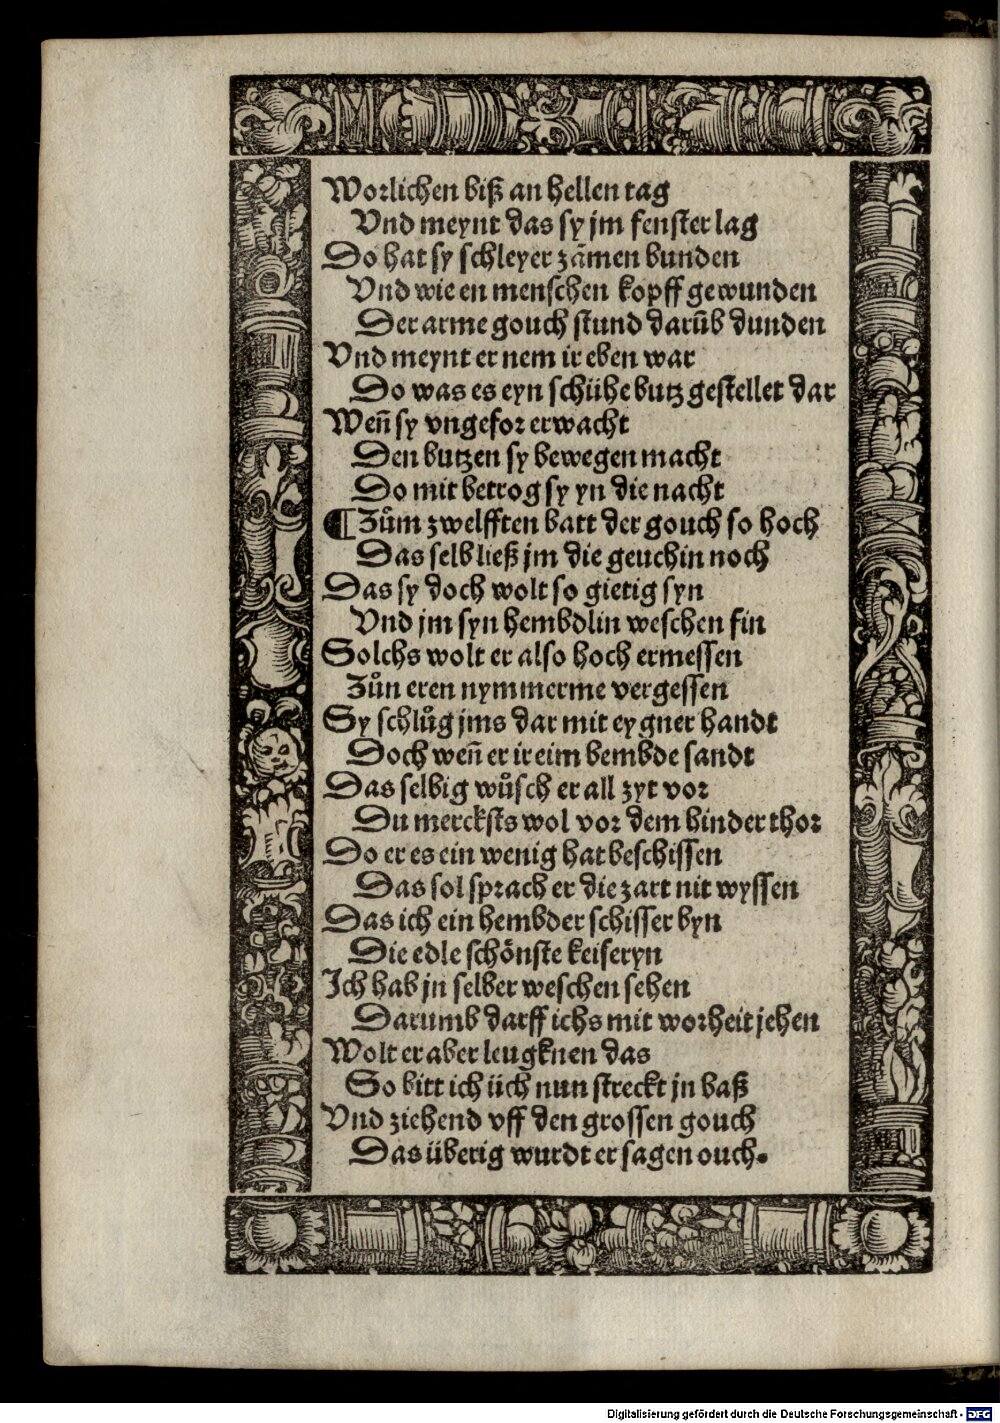 Worlichen biß an hellen tag
Vnd meynt das sy jm fenster lag
Do hat sy schleyer zāmen bunden
Vnd wie en menschen kopff gewunden
Der arme gouch stund darūb dunden
Vnd meynt er nem ir eben war
Do was es eyn schühe butz gestellet dar
Weñ sy vngefor erwacht
Den butzen sy bewegen macht
Do mit betrog sy yn die nacht
¶ Zům zwelfften batt der gouch so hoch
Das selb ließ jm die geuchin noch
Das sy doch wolt so gietig syn
Vnd jm syn hembdlin weschen fin
Solchs wolt er also hoch ermessen
Zůn eren nymmerme vergessen
Sy schlůg jms dar mit eygner handt
Doch weñ er ir eim hembde sandt
Das selbig wůsch er all zyt vor
Du mercksts wol vor dem hinder thor
Do er es ein wenig hat beschissen
Das sol sprach er die zart nit wyssen
Das ich ein hembder schisser byn
Die edle schönste keiseryn
Ich hab jn selber weschen sehen
Darumb darff ichs mit worheit jehen
Wolt er aber leugknen das
So bitt ich üch nun streckt jn baß
Vnd ziehend vff den grossen gouch
Das überig wurdt er sagen ouch.
Digitalisierung gefördert durch die Deutsche Forschungsgemeinschaft - DFG